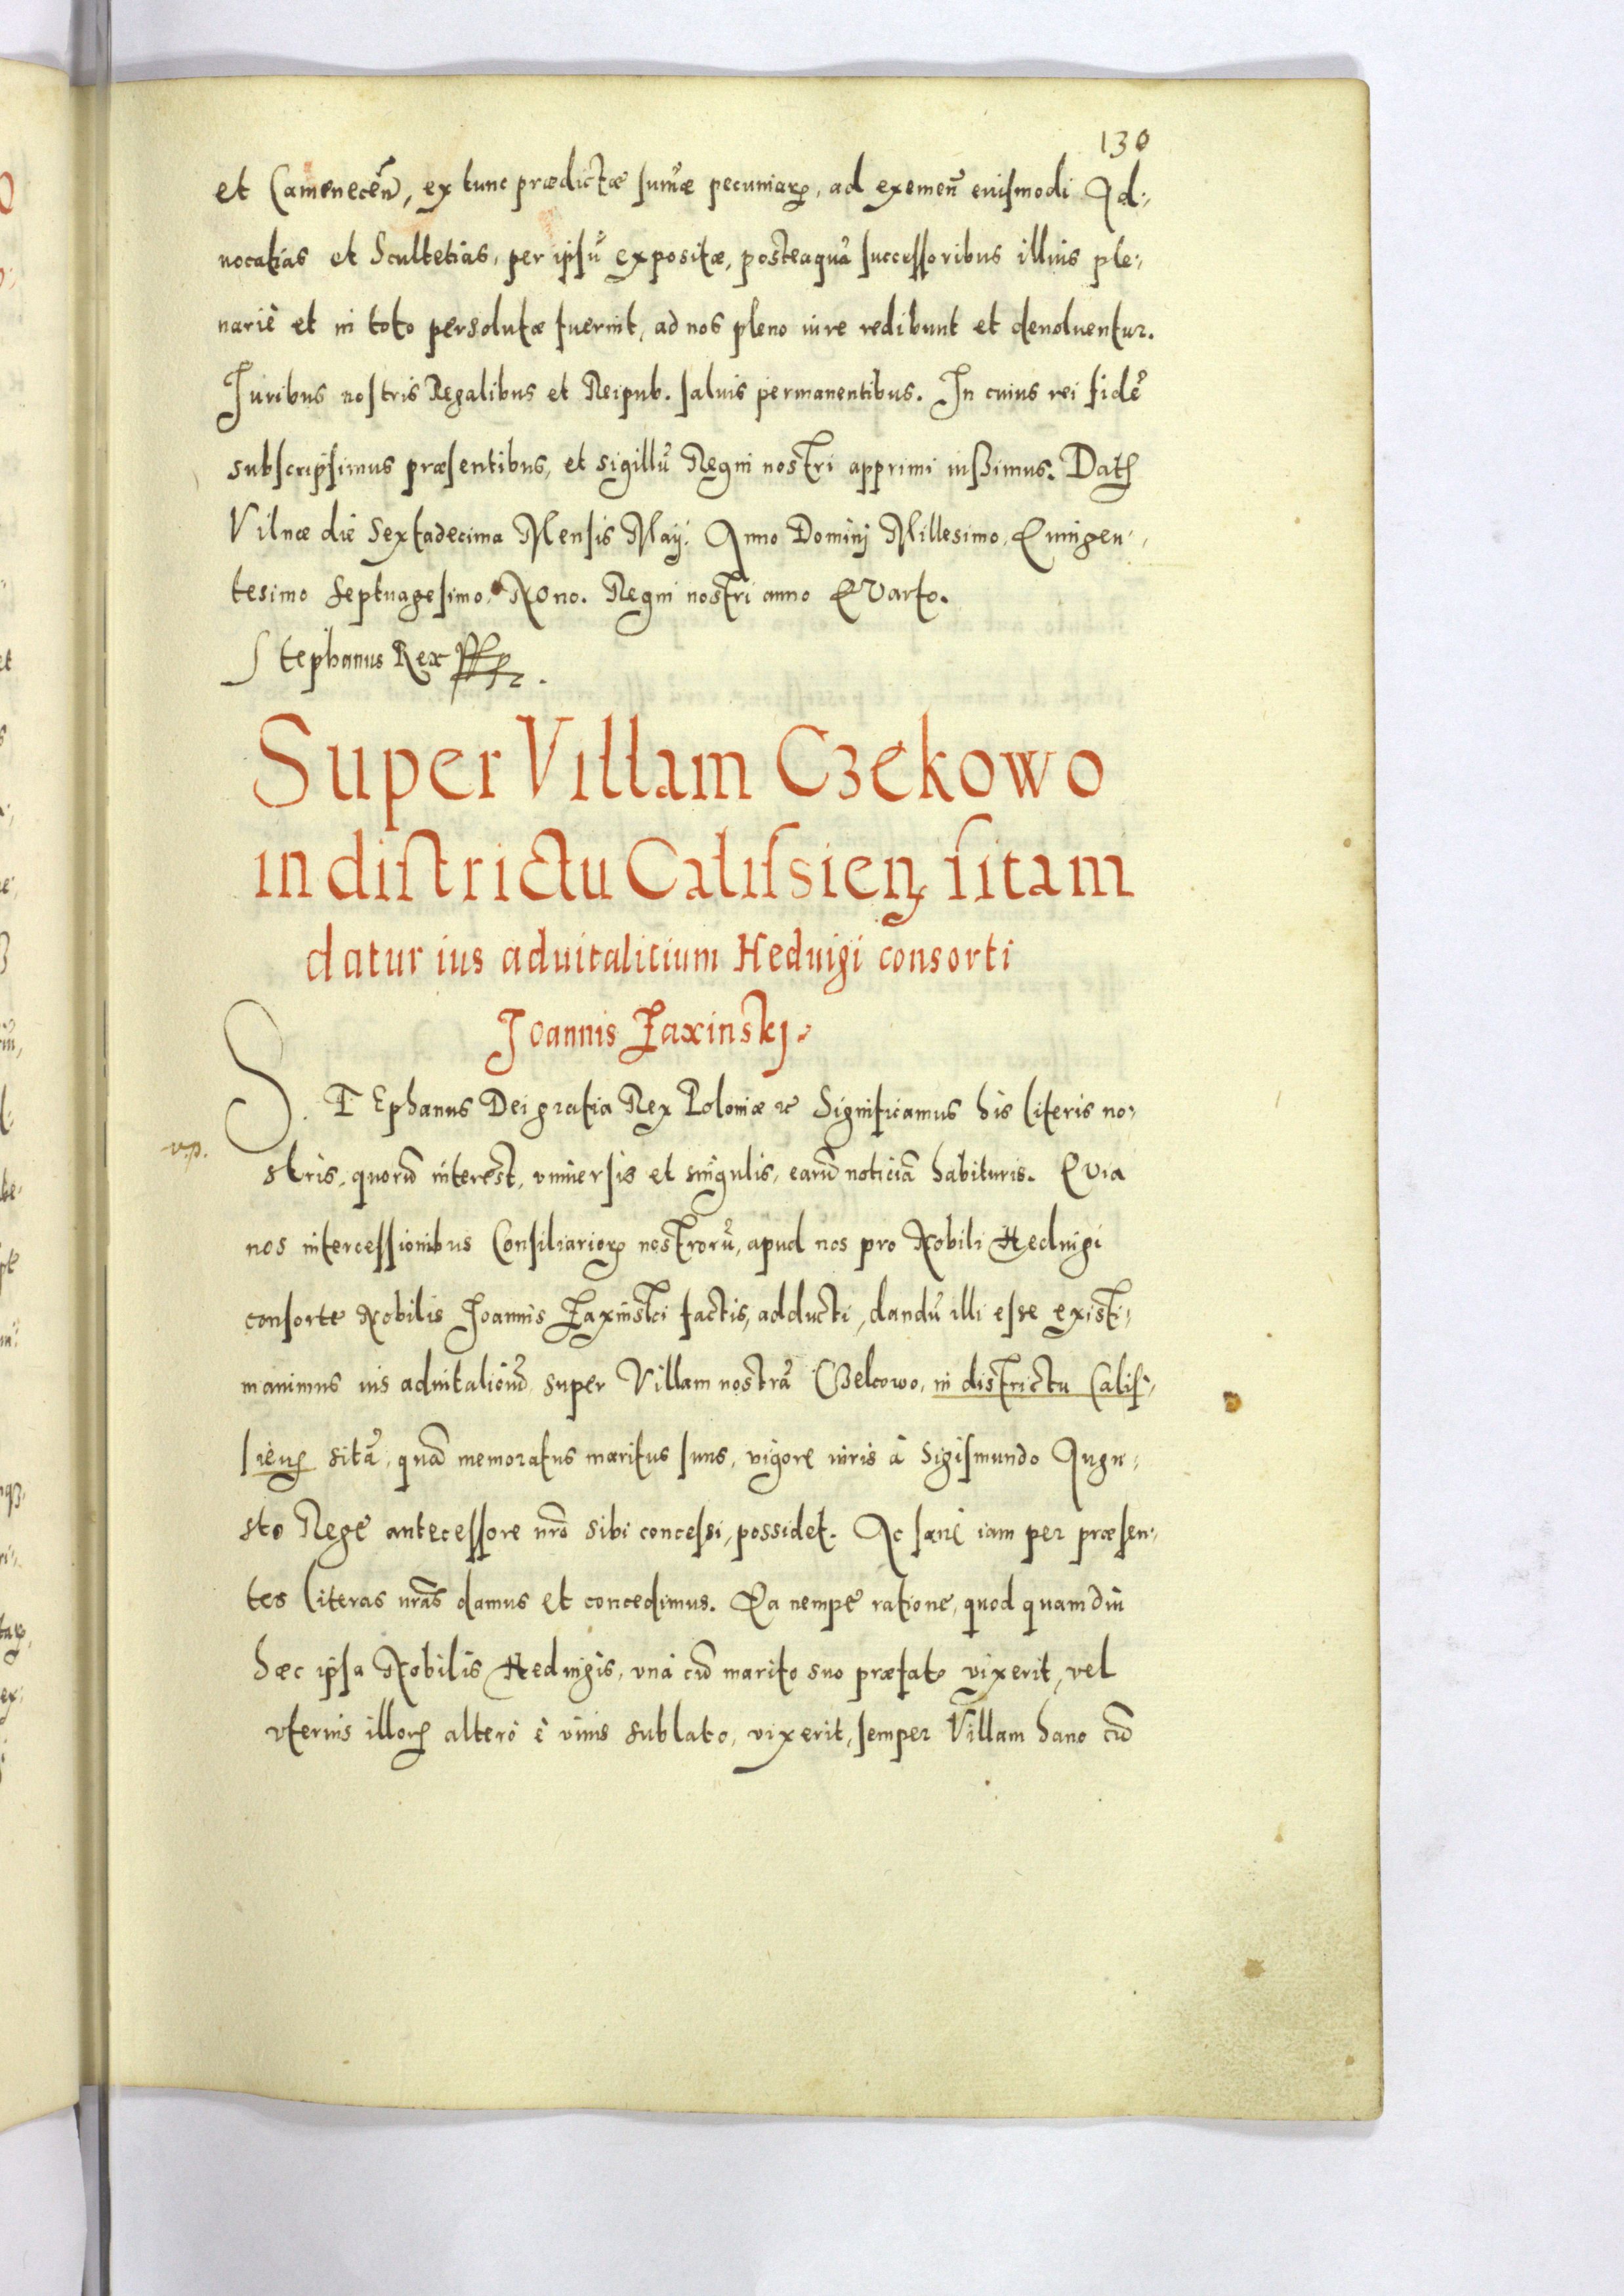 130
et Cameneceñ, ex tunc prædictæ sum̃æ pecuniarꝝ, ad exemeñ eiusmodi Ad-
uocatias et Scultetias, per ipsũ expositæ, posteaquã successoribus illius ple-
nariè et in toto persolutæ fuerint, ad nos pleno iure redibunt et deuoluentur.
Juribus nostris Regalibus et Reipub. saluis permanentibus. In cuius rei fidẽ
subscripsimus præsentibus, et sigillũ Regni nostri apprimi iussimus. Datꝭ
Vilnæ die Sextadecima Mensis Maij. Anno Dominj Millesimo, Quingen-
tesimo Septuagesimo, Nono. Regni nostri anno QVarto.
Stephanus Rex
Super Villam Czekowo
in diſtrictu Caliſsienꝭ ſitam
datur ius aduitalitium Heduigi consorti
Joannis Łaxinskj.
STEphanus Dei gratia Rex Poloniæ ꝛc Significamus his literis no-
v.p.
stris, quorũ interest, vniuersis et singulis, earũ noticiã habituris. QVia
nos intercessionibus Consiliariorꝝ nostrorũ, apud nos pro Nobili Heduigi
consorte Nobilis Joannis Łaxinski factis, adducti, dandũ illi esse existi-
mauimus ius aduitaliciũ super Villam nostrã Czekowo, in districtu Calis-
sienꝭ sitã, quã memoratus maritus suus, vigore iuris à Sigismundo Augu-
sto Rege antecessore nr̃o sibi concessi, possidet. Ac sanè iam per præsen-
tes literas nr̃as damus et concedimus. Ea nempe ratione, quod quamdiu
hæc ipsa Nobilis Heduigis, vnà cũ marito suo præfato vixerit, vel
vteruis illorꝝ altero è viuis sublato, vixerit, semper Villam hanc cũ